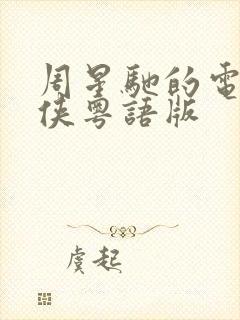 周星馳的電
俠粵語版
虞起